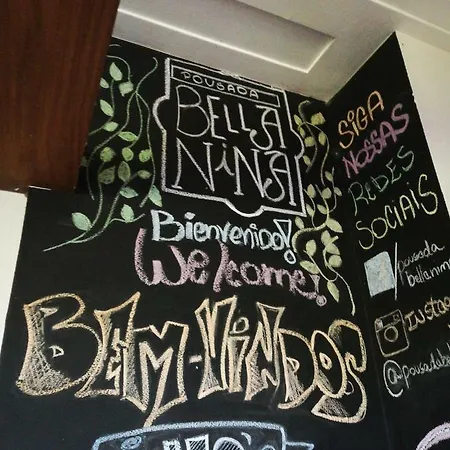 POUSADA
BELLA
NINA
Bienvenido!
Welcome!
BEM-VINDOS
SIGA
NOSSAS
REDES
SOCIAIS
/pousada